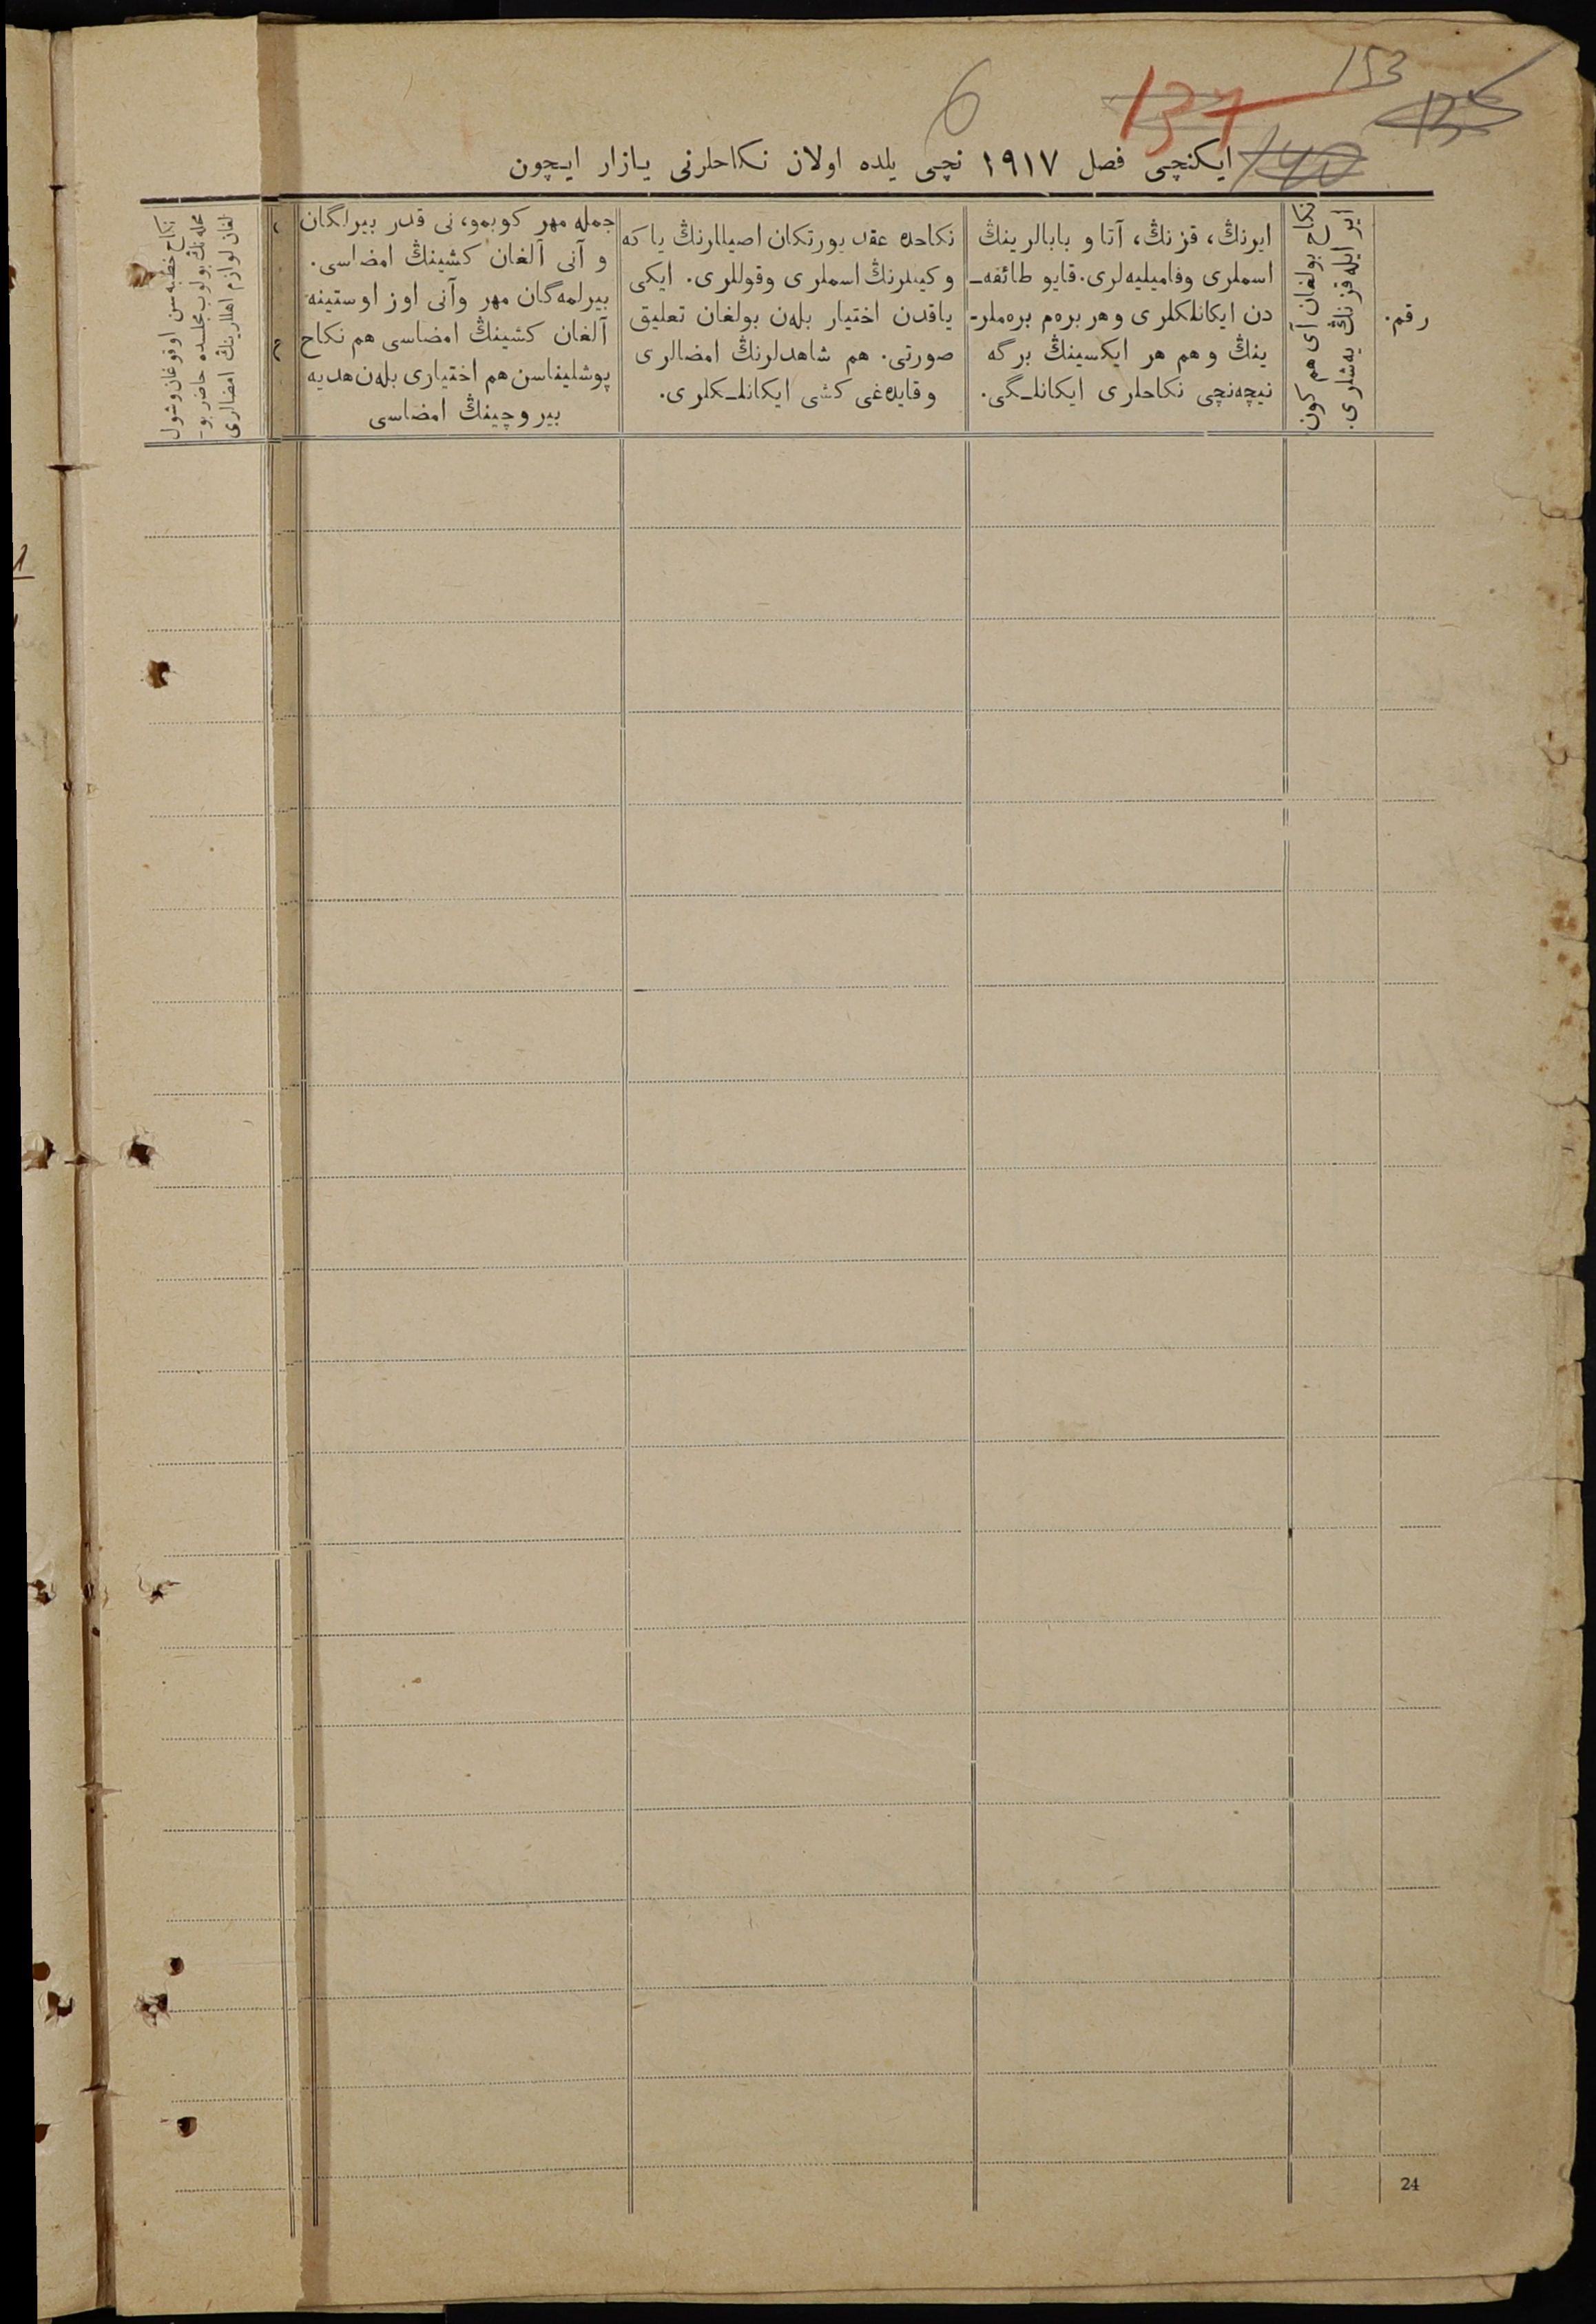 153
6
137
135
140
ایکنچی فصل ۱۹۱۷ نچی یلده اولان نکاحلرنی یازار ایچون
رقم.
نکاح بولغان آی هم کون
ایر ایله قزنڭ یەشلری.
ایرنڭ، قزنڭ، آتا و بابالرینڭ
اسملری وفامیلیەلری. قایو طائفه‌ـ
دن ایکانلکلری وهر برەم برەملر-
ینڭ وهم هر ایکسینڭ برگه
نیچەنچی نکاحلری ایکانلـگی.
نکاحده عقد یورتکان اصیللارنڭ یاکه
وکیللرنڭ اسملری وقوللری. ایکی
یاقدن اختیار بلەن بولغان تعلیق
صورتی. هم شاهدلرنڭ امضالری
وقایدەغی کشی ایکانلـکلری.
جمله مهر کوبمو، نی قدر بیرلگان
و آنی آلغان کشینڭ امضاسی.
بیرلمەگان مهر وآنی اوز اوستینه
آلغان کشینڭ امضاسی هم نکاح
پوشلیناسن هم اختیاری بلەن هدیه
بیروچینڭ امضاسی
نکاح خطبەسن اوقوغان وشول
محلەنڭ بولوب مجلسده حاضر بو-
لغان لوازم اهللارینڭ امضالری
24